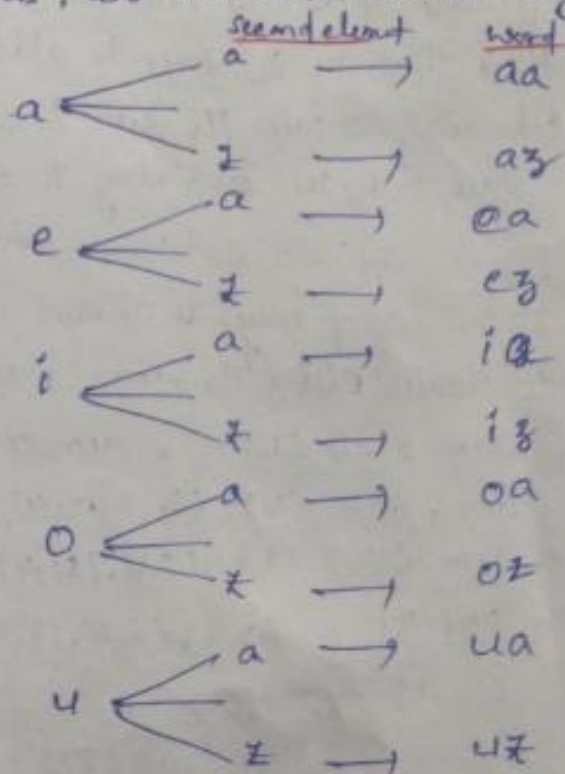 second element word
a → aa
a
z → az
a → ea
e
z → ez
a → ia
i
z → iz
a → oa
o
z → oz
a → ua
u
z → uz